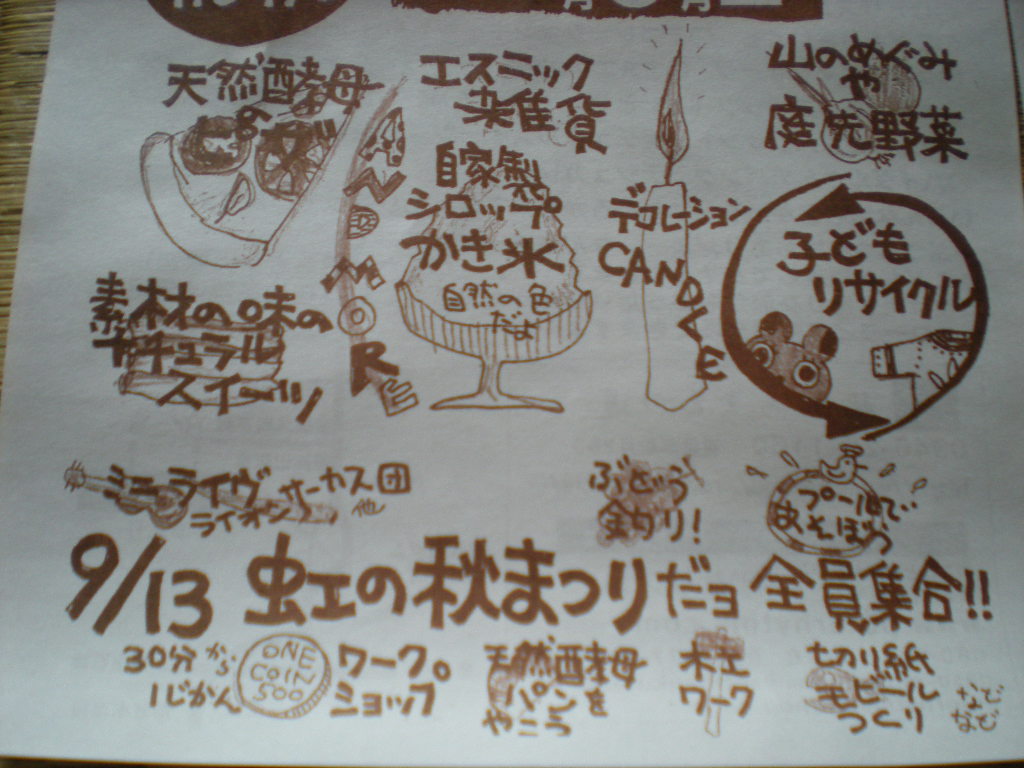 天然酵母
の
ピザ
エスニック
雑貨
山のめぐみ
や
庭先野菜
自家製
シロップ
かき氷
自然の色
だよ
デコレーション
CANDLE
子ども
リサイクル
AND MORE
素材の味の
ナチュラル
スイーツ
ミニライヴ
ライオンサーカス団
他
ぶどう
釣り!
プールで
あそぼう
9/13 虹の秋まつりだヨ 全員集合!!
30分から
1じかん
ONE
COIN
500
ワーク。
ショップ
天然酵母
パンを
やこう
木工
ワーク
切り紙
モビール
つくり
などなど